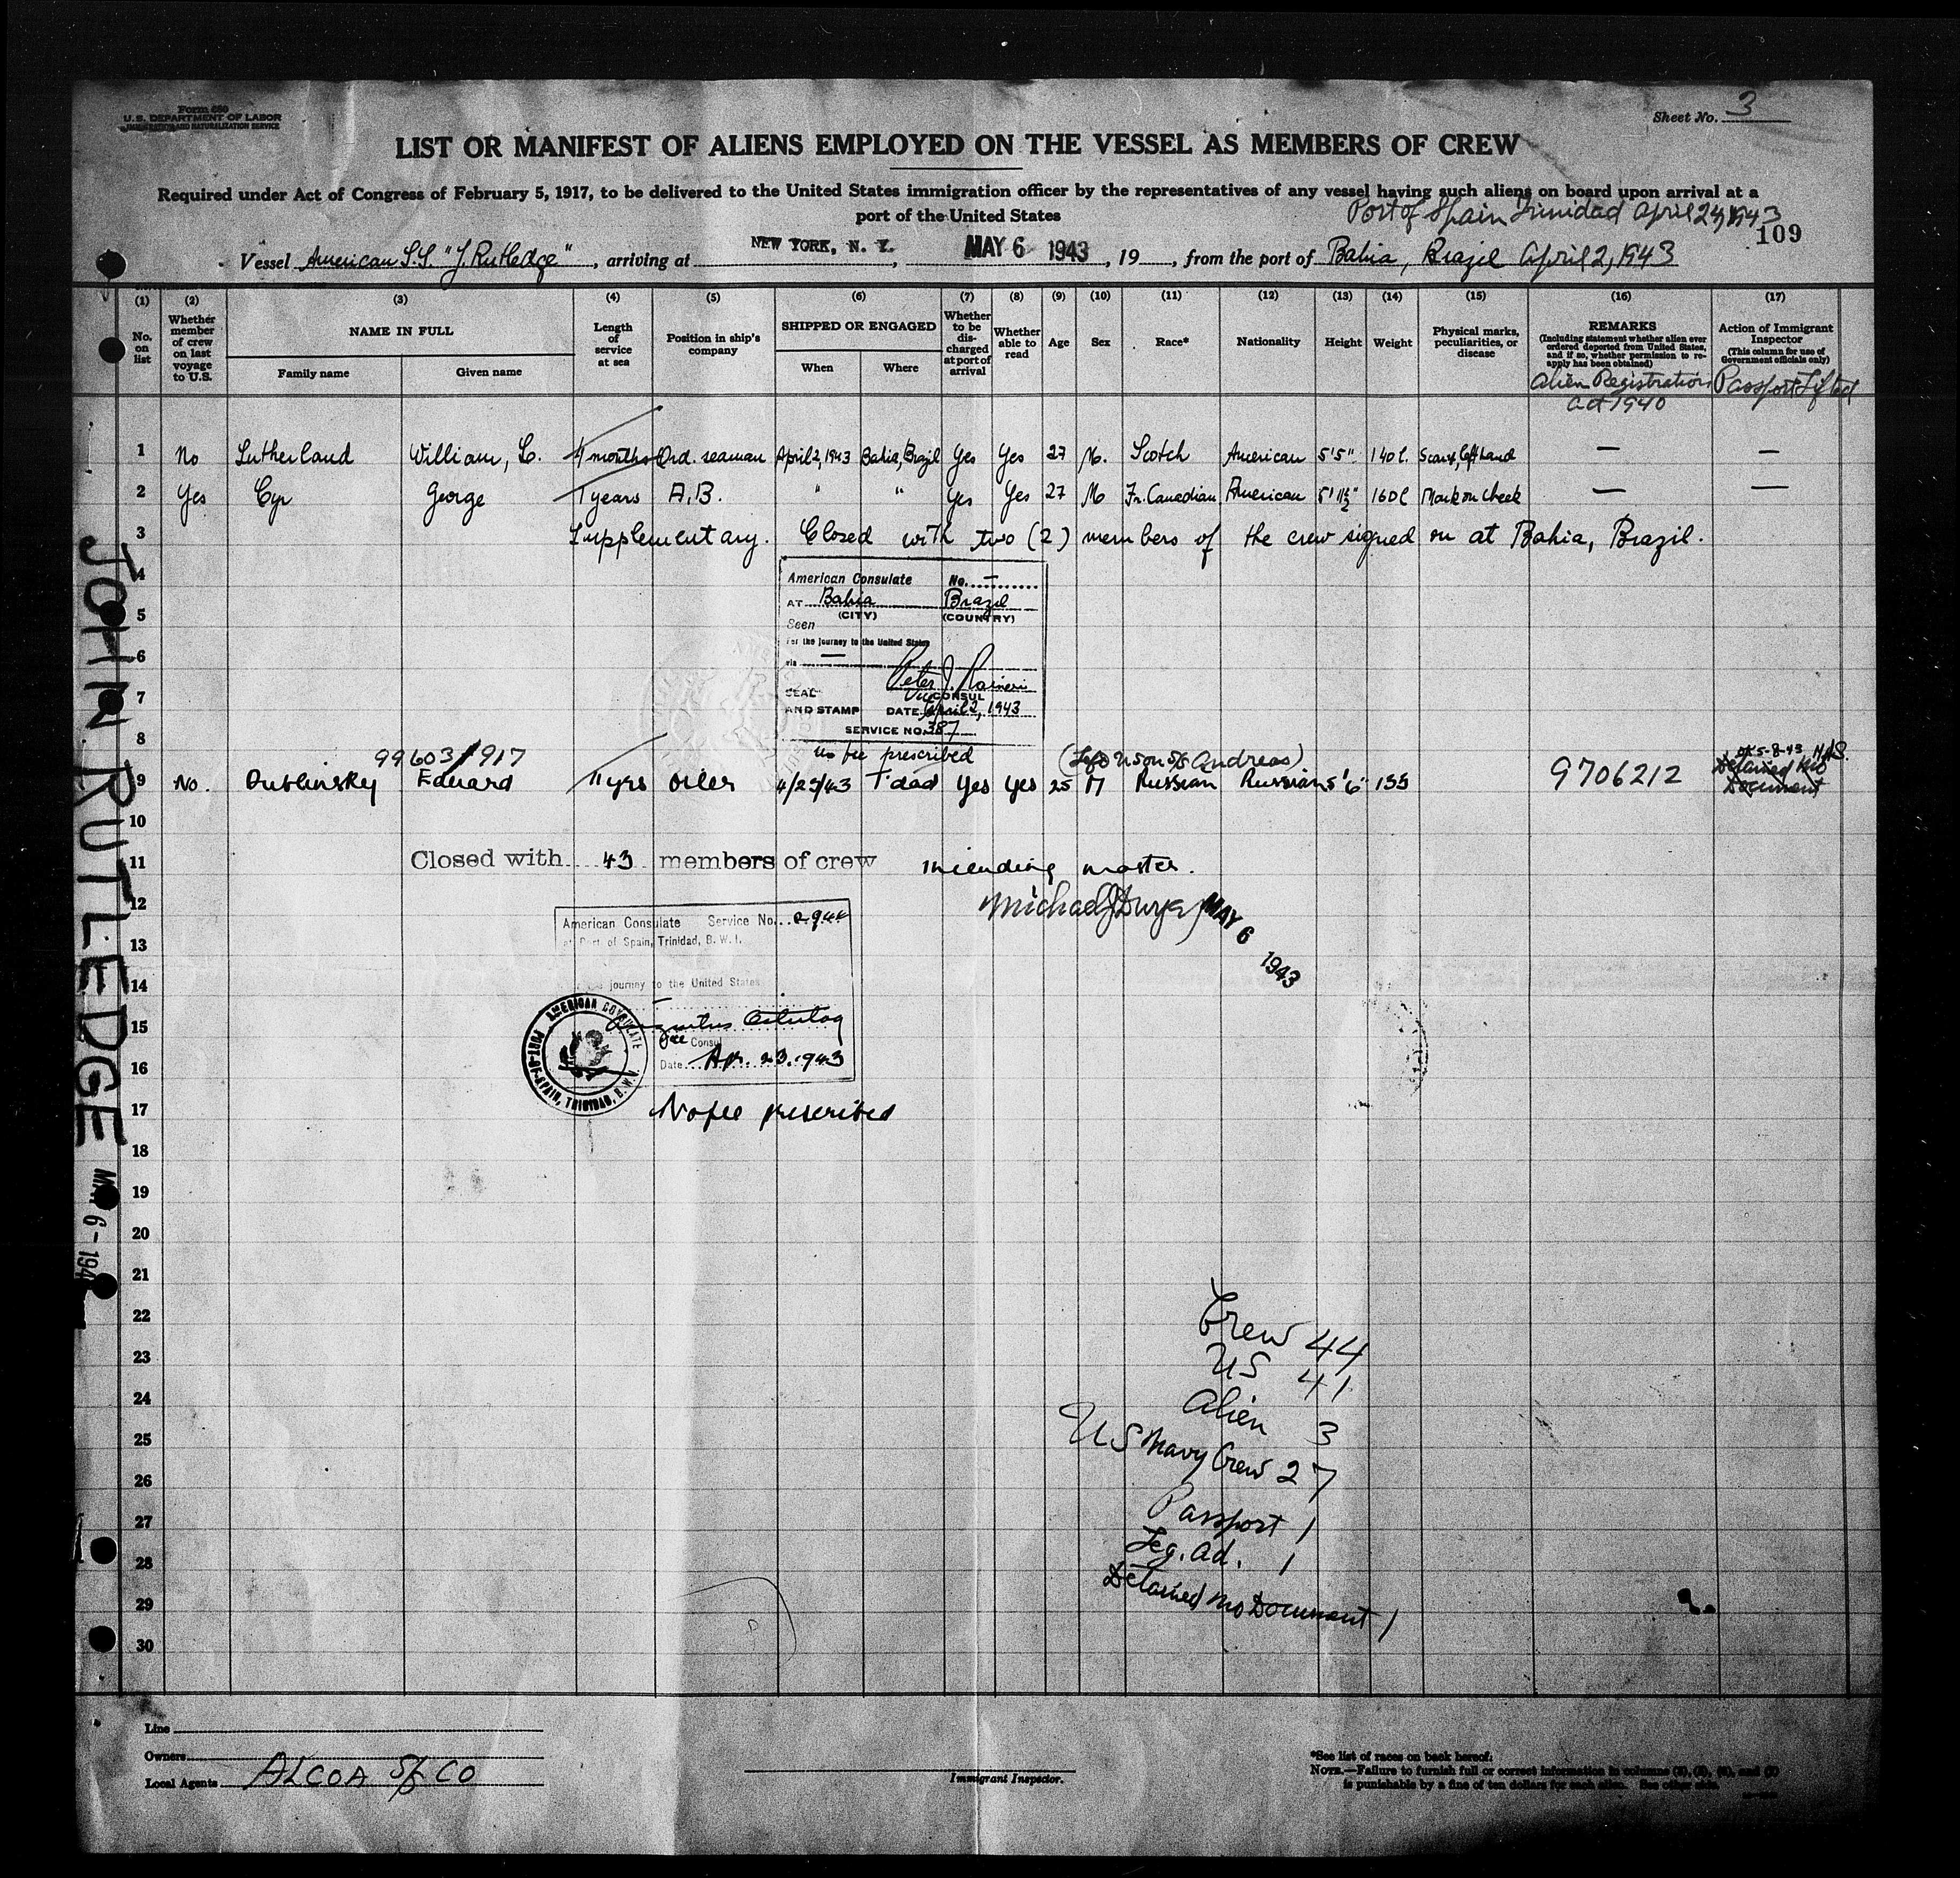 Form 680
U.S. DEPARTMENT OF LABOR
IMMIGRATION AND NATURALIZATION SERVICE
Sheet No. 3
LIST OR MANIFEST OF ALIENS EMPLOYED ON THE VESSEL AS MEMBERS OF CREW
Required under Act of Congress of February 5, 1917, to be delivered to the United States immigration officer by the representatives of any vessel having such aliens on board upon arrival at a
port of the United States
Port of Spain Trinidad April 24, 1943
109
Vessel American S.S. "J. Rutledge", arriving at NEW YORK, N. Y., MAY 6 1943, 19, from the port of Bahia, Brazil April 2, 1943
(1) (2) (3) (4) (5) (6) (7) (8) (9) (10) (11) (12) (13) (14) (15) (16) (17)
No. on list
Whether member of crew on last voyage to U.S.
NAME IN FULL
Family name
Given name
Length of service at sea
Position in ship's company
SHIPPED OR ENGAGED
When
Where
Whether to be discharged at port of arrival
Whether able to read
Age
Sex
Race*
Nationality
Height
Weight
Physical marks, peculiarities, or disease
REMARKS
(Including statement whether alien ever ordered deported from United States, and if so, whether permission to reapply has been obtained)
Alien Registration
Act 1940
Action of Immigrant Inspector
(This column for use of Government officials only)
Passport Lifted
1 No Sutherland William, C. 4 months Ord. seaman April 2, 1943 Bahia, Brazil Yes Yes 27 M. Scotch American 5'5" 140 l. Scar, left hand — —
2 Yes Cyr George 1 years A.B. " " Yes Yes 27 M Fr. Canadian American 5'11½" 160 l Mark on cheek — —
3 Supplementary. Closed with two (2) members of the crew signed on at Bahia, Brazil.
4
American Consulate No. —
AT Bahia Brazil
(CITY) (COUNTRY)
5
Seen
For the journey to the United States
6
via —
Peter J. Raineri
7
SEAL Vice CONSUL
AND STAMP DATE April 2, 1943
SERVICE NO. 387
8
no fee prescribed
99603/917
9 No. Dublinsky Eduard 11 yrs oiler 4/23/43 T'dad Yes Yes 25 M Russian Russian 5'6" 155 9706212
OK 5-8-43
Detained No
Document
10
11 Closed with 43 members of crew including master.
12
MAY 6 1943
American Consulate Service No. 2944
at Port of Spain, Trinidad, B. W. I.
13
14
journey to the United States
15
Vice Consul
Date Apr. 23. 1943
AMERICAN CONSULATE
PORT-OF-SPAIN, TRINIDAD, B.W.I.
16
17 No fee prescribed
18
19
20
21
22 Crew 44
23 US 41
24 Alien 3
25 US Navy Crew 27
26
27 Passport 1
28 Leg. Ad. 1
29 Detained no Document 1
30
JOHN RUTLEDGE
MAY 6 - 194
Line
Owners
Local Agents ALCOA S/S CO
Immigrant Inspector.
*See list of races on back hereof.
NOTE.—Failure to furnish full or correct information in columns
is punishable by a fine of ten dollars for each alien. See other side.